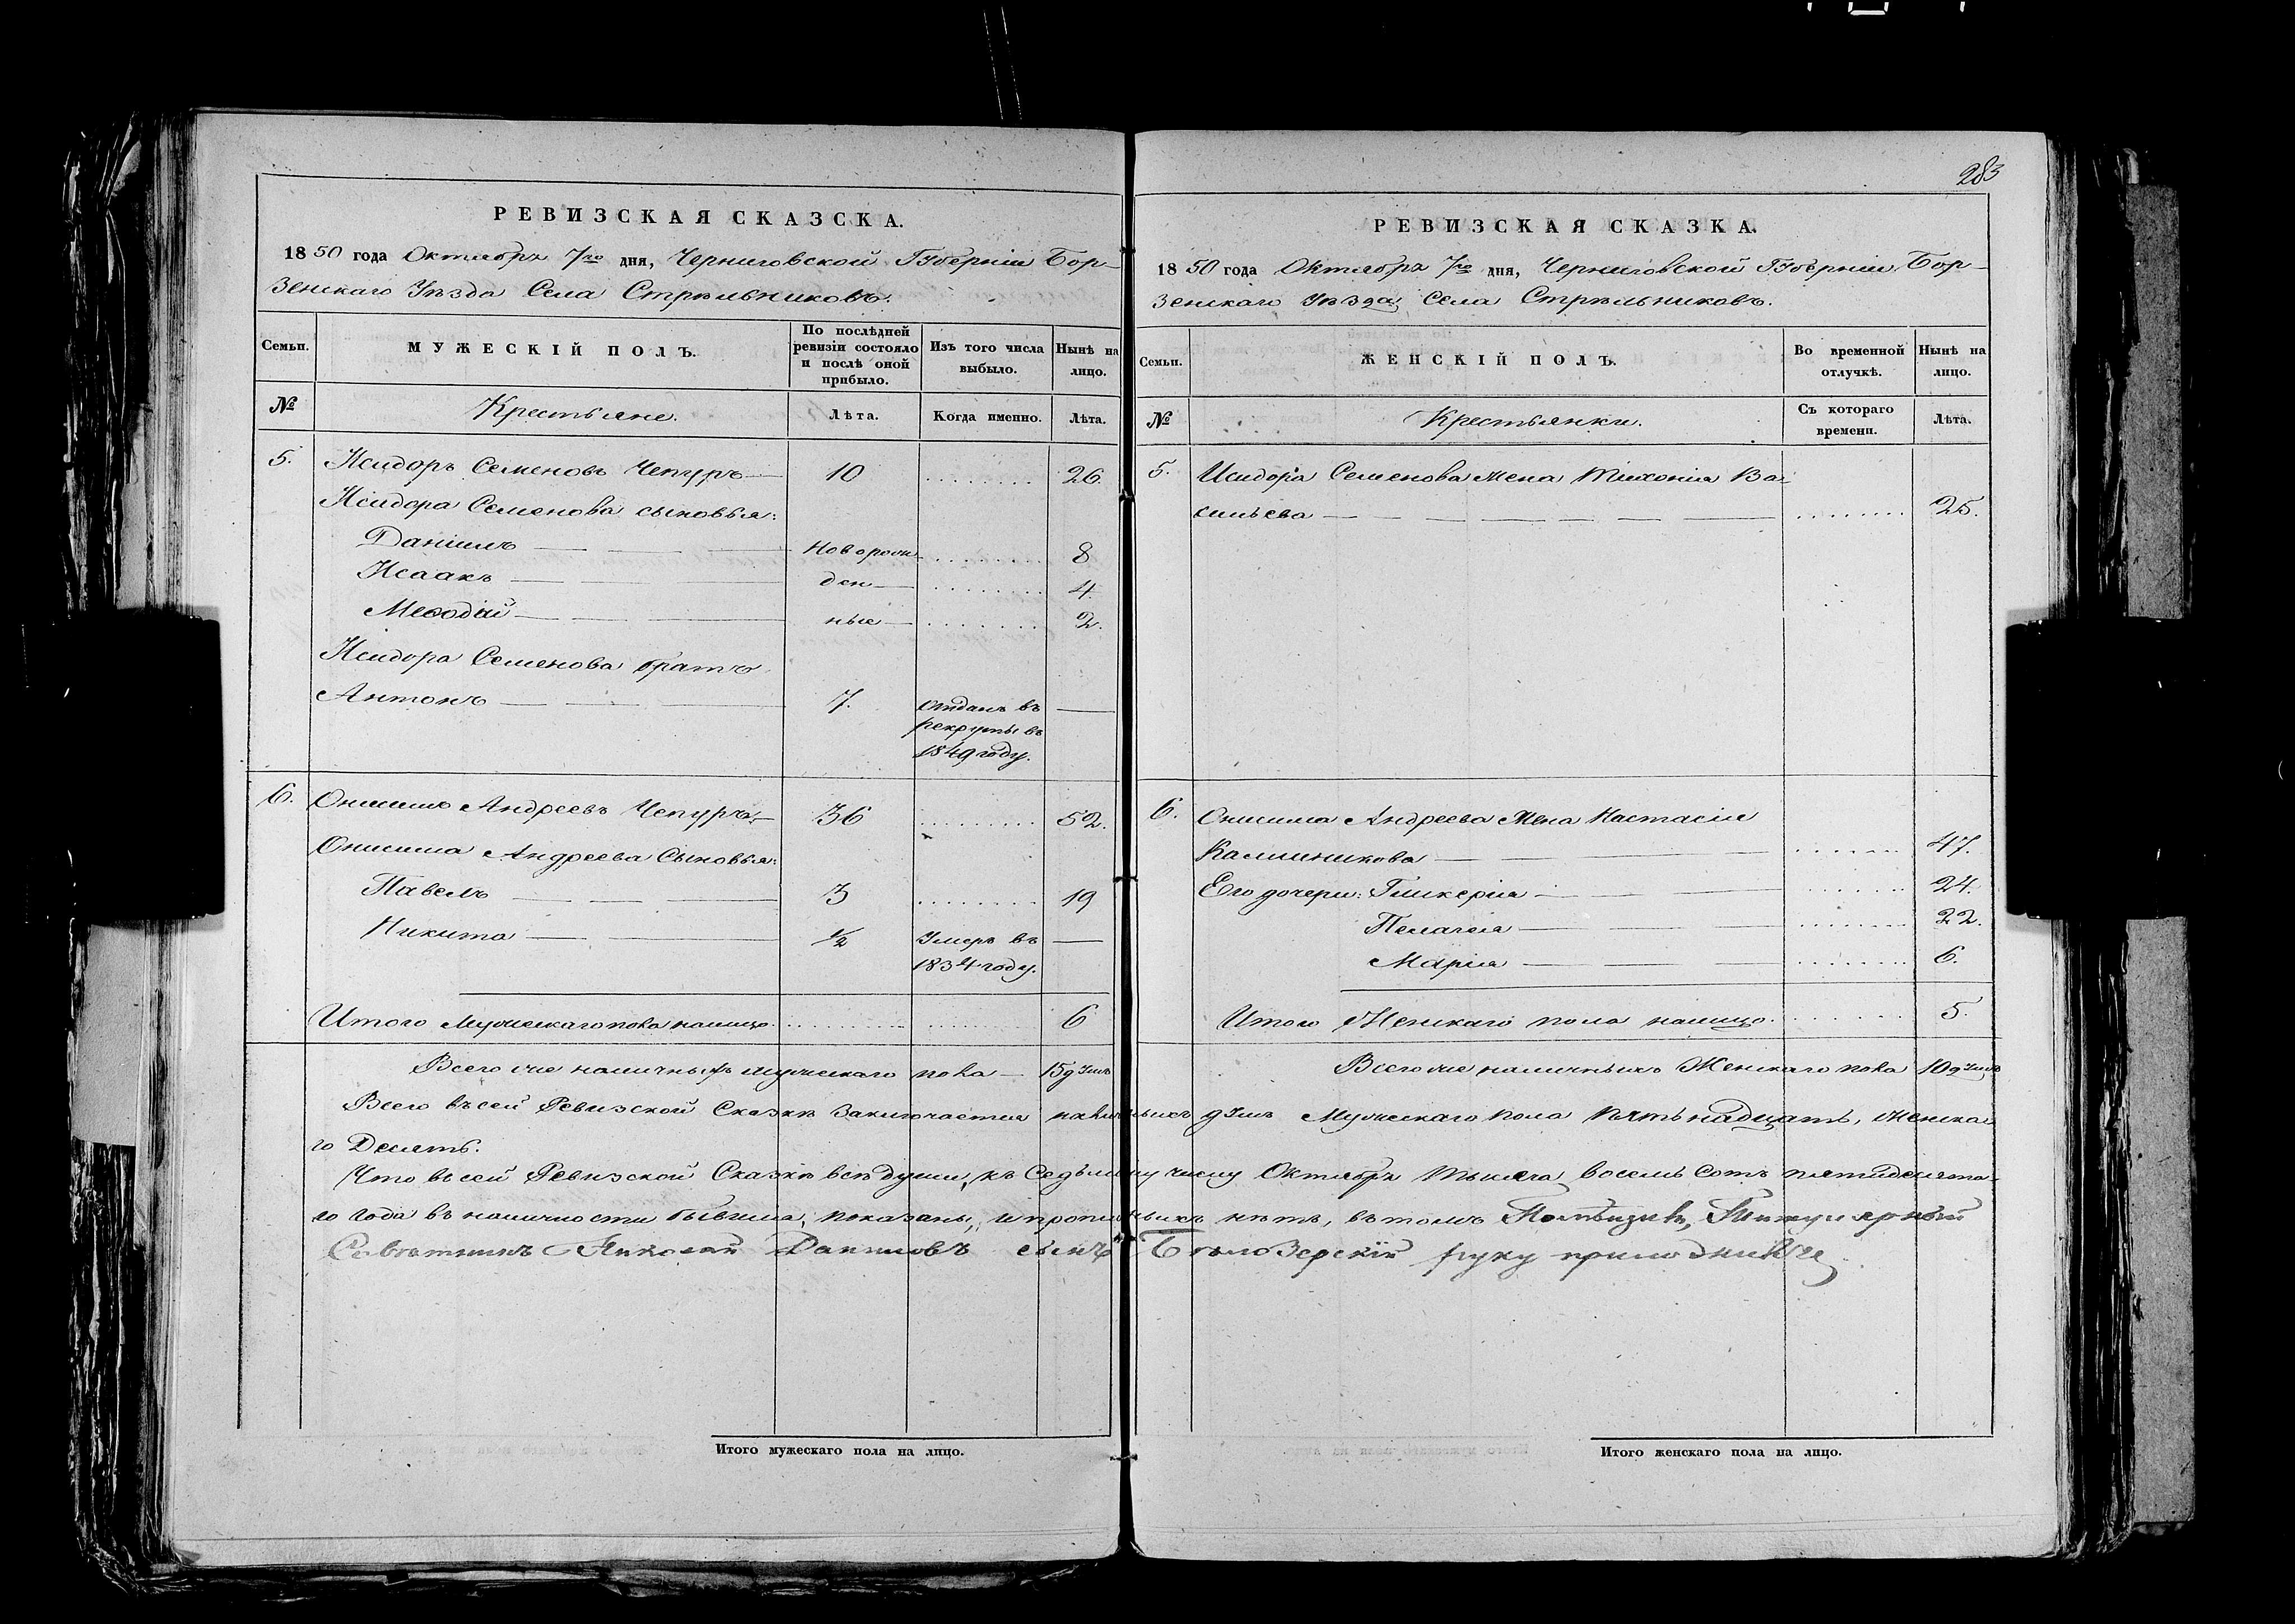 РЕВИЗСКАЯ СКАЗСКА.
1850 года Октября 7го дня, Черниговской Губерніи Бор-
зенскаго Уѣзда Села Стрѣльниковъ.
Семьи. МУЖЕСКІЙ ПОЛЪ. По послѣдней ревизіи состояло и послѣ оной прибыло. Изъ того числа выбыло. Нынѣ на лицо.
№ Крестьяне. Лѣта. Когда именно. Лѣта.
5. Исидоръ Семеновъ Чепуръ 10 26
Исидора Семенова сыновья:
Даніилъ новорож 8
Исаакъ ден 4.
Меѳодій ные 2.
Исидора Семенова братъ
Антонъ 7. отданъ въ
рекруты въ
1849 году.
6. Онисимъ Андреевъ Чепуръ 36 52.
Онисима Андреева сыновья:
Павелъ 3 19
Никита 1/2 Умеръ въ
1834 году.
Итого мужескаго пола налицо 6
283
РЕВИЗСКАЯ СКАЗКА.
1850 года Октября 7го дня, Черниговской Губерніи Бор-
зенскаго Уѣзда Села Стрѣльниковъ.
Семьи. ЖЕНСКІЙ ПОЛЪ. Во временной отлучкѣ. Нынѣ на лицо.
№ Крестьянки. Съ котораго времени. Лѣта.
5. Исидора Семенова жена Васи-
сильева 25.
6. Онисима Андреева жена Настасія
Калинникова 47.
Его дочери: Гликерія 24.
Пелагея 22.
Марія 6.
Итого Женскаго пола налицо. 5.
Всего же наличныхъ мужескаго пола 15 душъ Всего же наличныхъ Женскаго пола 10 душъ
Всего въ сей Ревизской Сказкѣ заключается наличныхъ душъ Мужескаго пола пятьнадцать, женска-
го Десять.
Что въ сей Ревизской Сказкѣ всѣ души, къ Седьмому числу Октября тысяча восемь сотъ пятидесята-
го года въ наличности бывшія, показаны, и прописныхъ нѣтъ, въ томъ Титулярный
Совѣтникъ Николай Даниловъ сынъ Бѣлозерскій руку приложилъ
Итого мужескаго пола на лицо.
Итого женскаго пола на лицо.